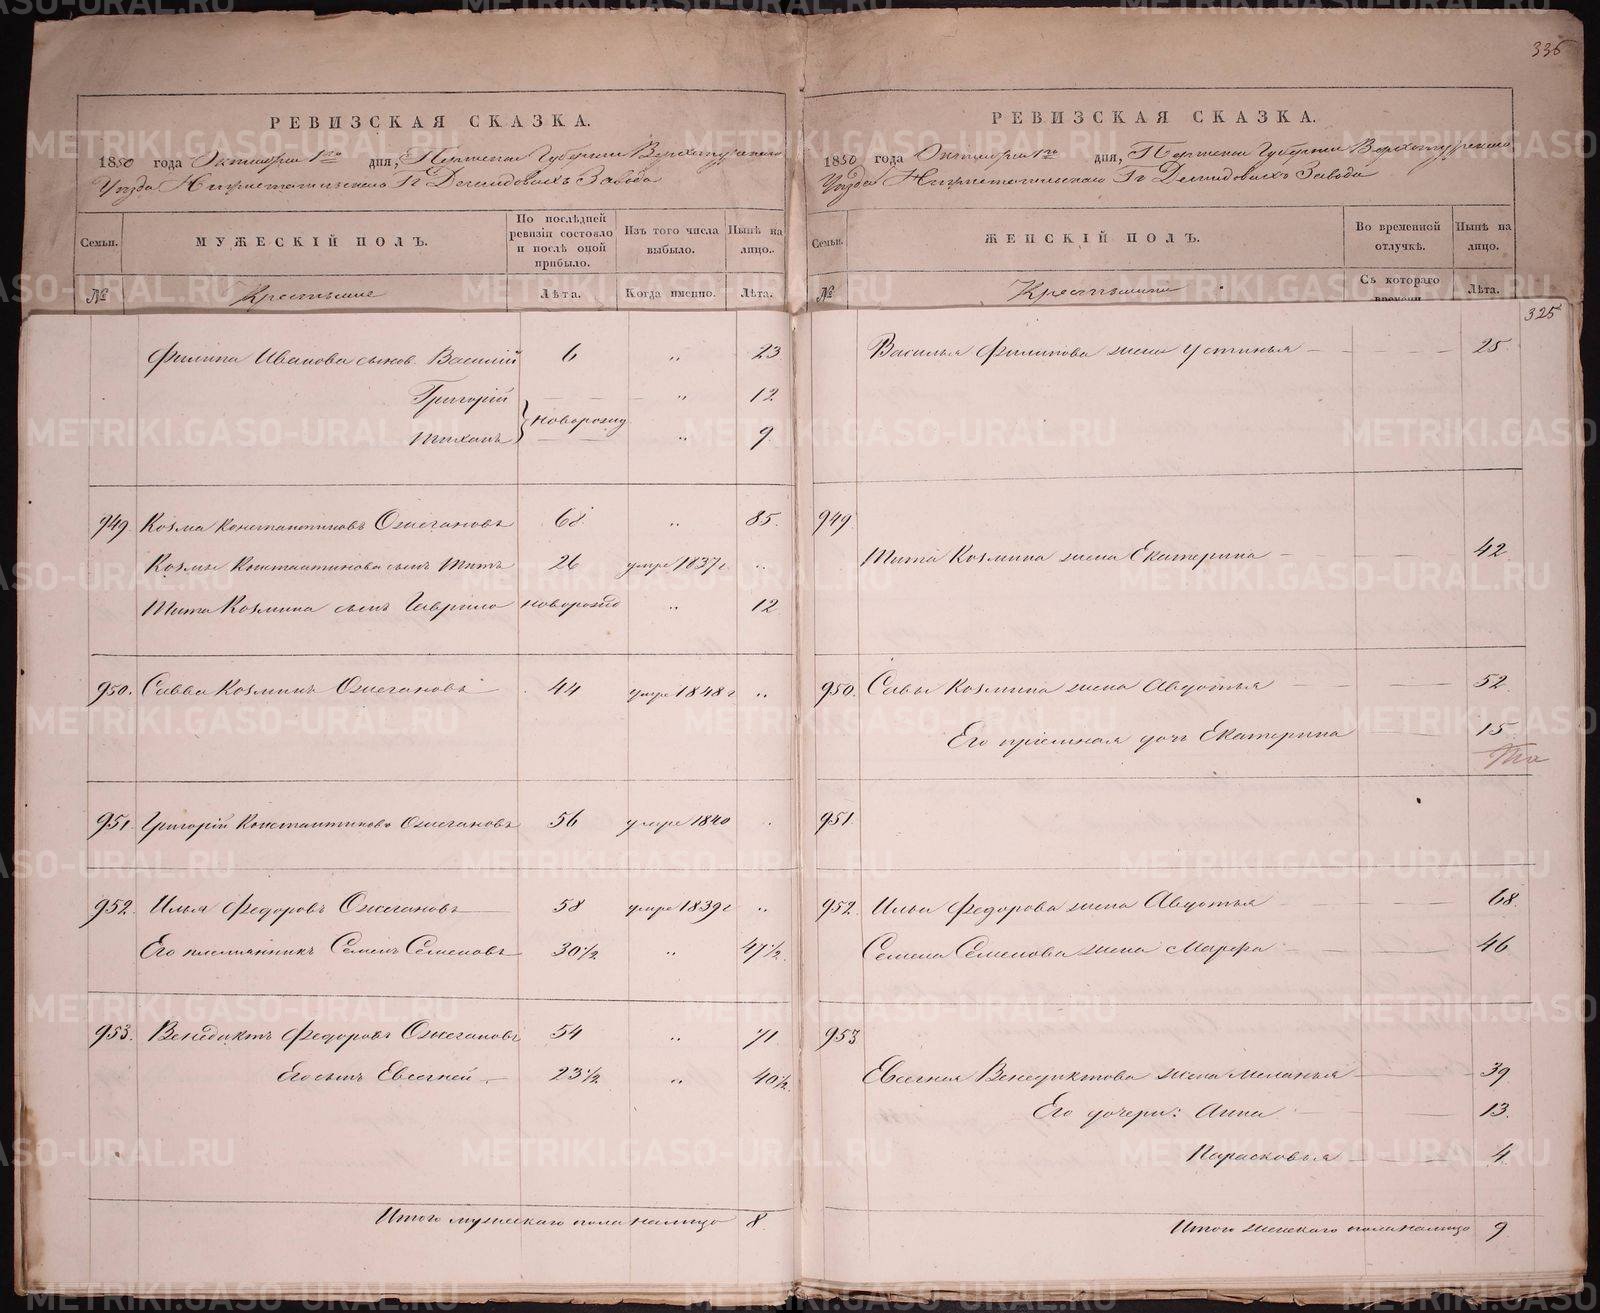 336
РЕВИЗСКАЯ СКАЗКА.
1850 года Октября 1го дня, Пермской Губернии Верхотурскаго
Уезда Нижнетагильскаго Гг Демидовыхъ Завода
Семьи.
МУЖЕСКІЙ ПОЛЪ.
По послѣдней ревизіи состояло и послѣ оной прибыло.
Изъ того числа выбыло.
Нынѣ на лицо.
№
Крестьяне
Лѣта.
Когда именно.
Лѣта.
Филипа Иванова сынов. Василій 6 „ 23
Григорій „ 12
новорожд
Тихонъ „ 9
949. Козма Константиновъ Ожегановъ 68 „ 85.
Козмы Константинова сынъ Титъ 26 умре 1837 г „
Тита Козмина сынъ Гаврило новорожд „ 12
950. Савва Козминъ Ожегановъ 44 умре 1848 г „
951. Григорій Константиновъ Ожегановъ 56 умре 1840 „
952. Илья Федоровъ Ожегановъ 58 умре 1839 г „
Его племянникъ Семенъ Семеновъ 30 1/2 „ 47 1/2
953. Венедиктъ Федоровъ Ожегановъ 54 „ 71
Его сынъ Евсегней 23 1/2 „ 40 1/2
Итого мужескаго пола налицо 8
РЕВИЗСКАЯ СКАЗКА.
1850 года Октября 1го дня, Пермской Губернии Верхотурскаго
Уезда Нижнетагильскаго Гг Демидовыхъ Завода
Семьи.
ЖЕНСКІЙ ПОЛЪ.
Во временной отлучкѣ.
Нынѣ на лицо.
№
Крестьянки
Съ котораго времени
Лѣта.
325
Василья Филипова жена Устинья 25
949
Тита Козмина жена Екатерина 42
950. Савы Козмина жена Авдотья 52
Его пріемная дочь Екатерина 15
951
952. Ильи Федорова жена Авдотья 68
Семена Семенова жена Марфа 46
953
Евсегнея Венедиктова жена Меланья 39
Его дочери: Анна 13.
Парасковья 4
Итого женскаго пола налицо 9
METRIKI.GASO-URAL.RU